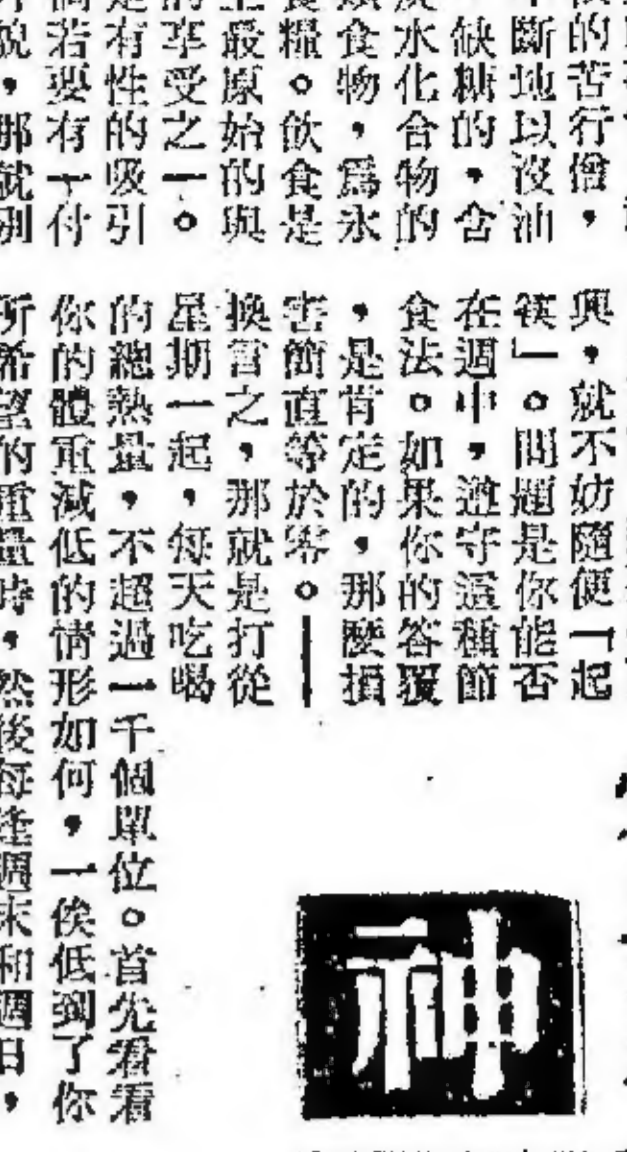 的苦行僧，
斷地以沒油
缺糖的，含
水化合物的
食物，爲永
糧。飲食是
最原始的與
享受之一。
有性的吸引
若要有一付
貌，那就別
興，就不妨隨便一起
筷」。問題是你能否
在週中，遵守這種節
食法。如果你的答覆
，是肯定的，那麼損
害簡直等於零。—
換言之，那就是打從
星期一起，每天吃喝
的總熱量，不超過一千個單位。首先看看
你的體重減低的情形如何，一俟低到了你
所希望的重量時，然後每逢週末和週日，
神